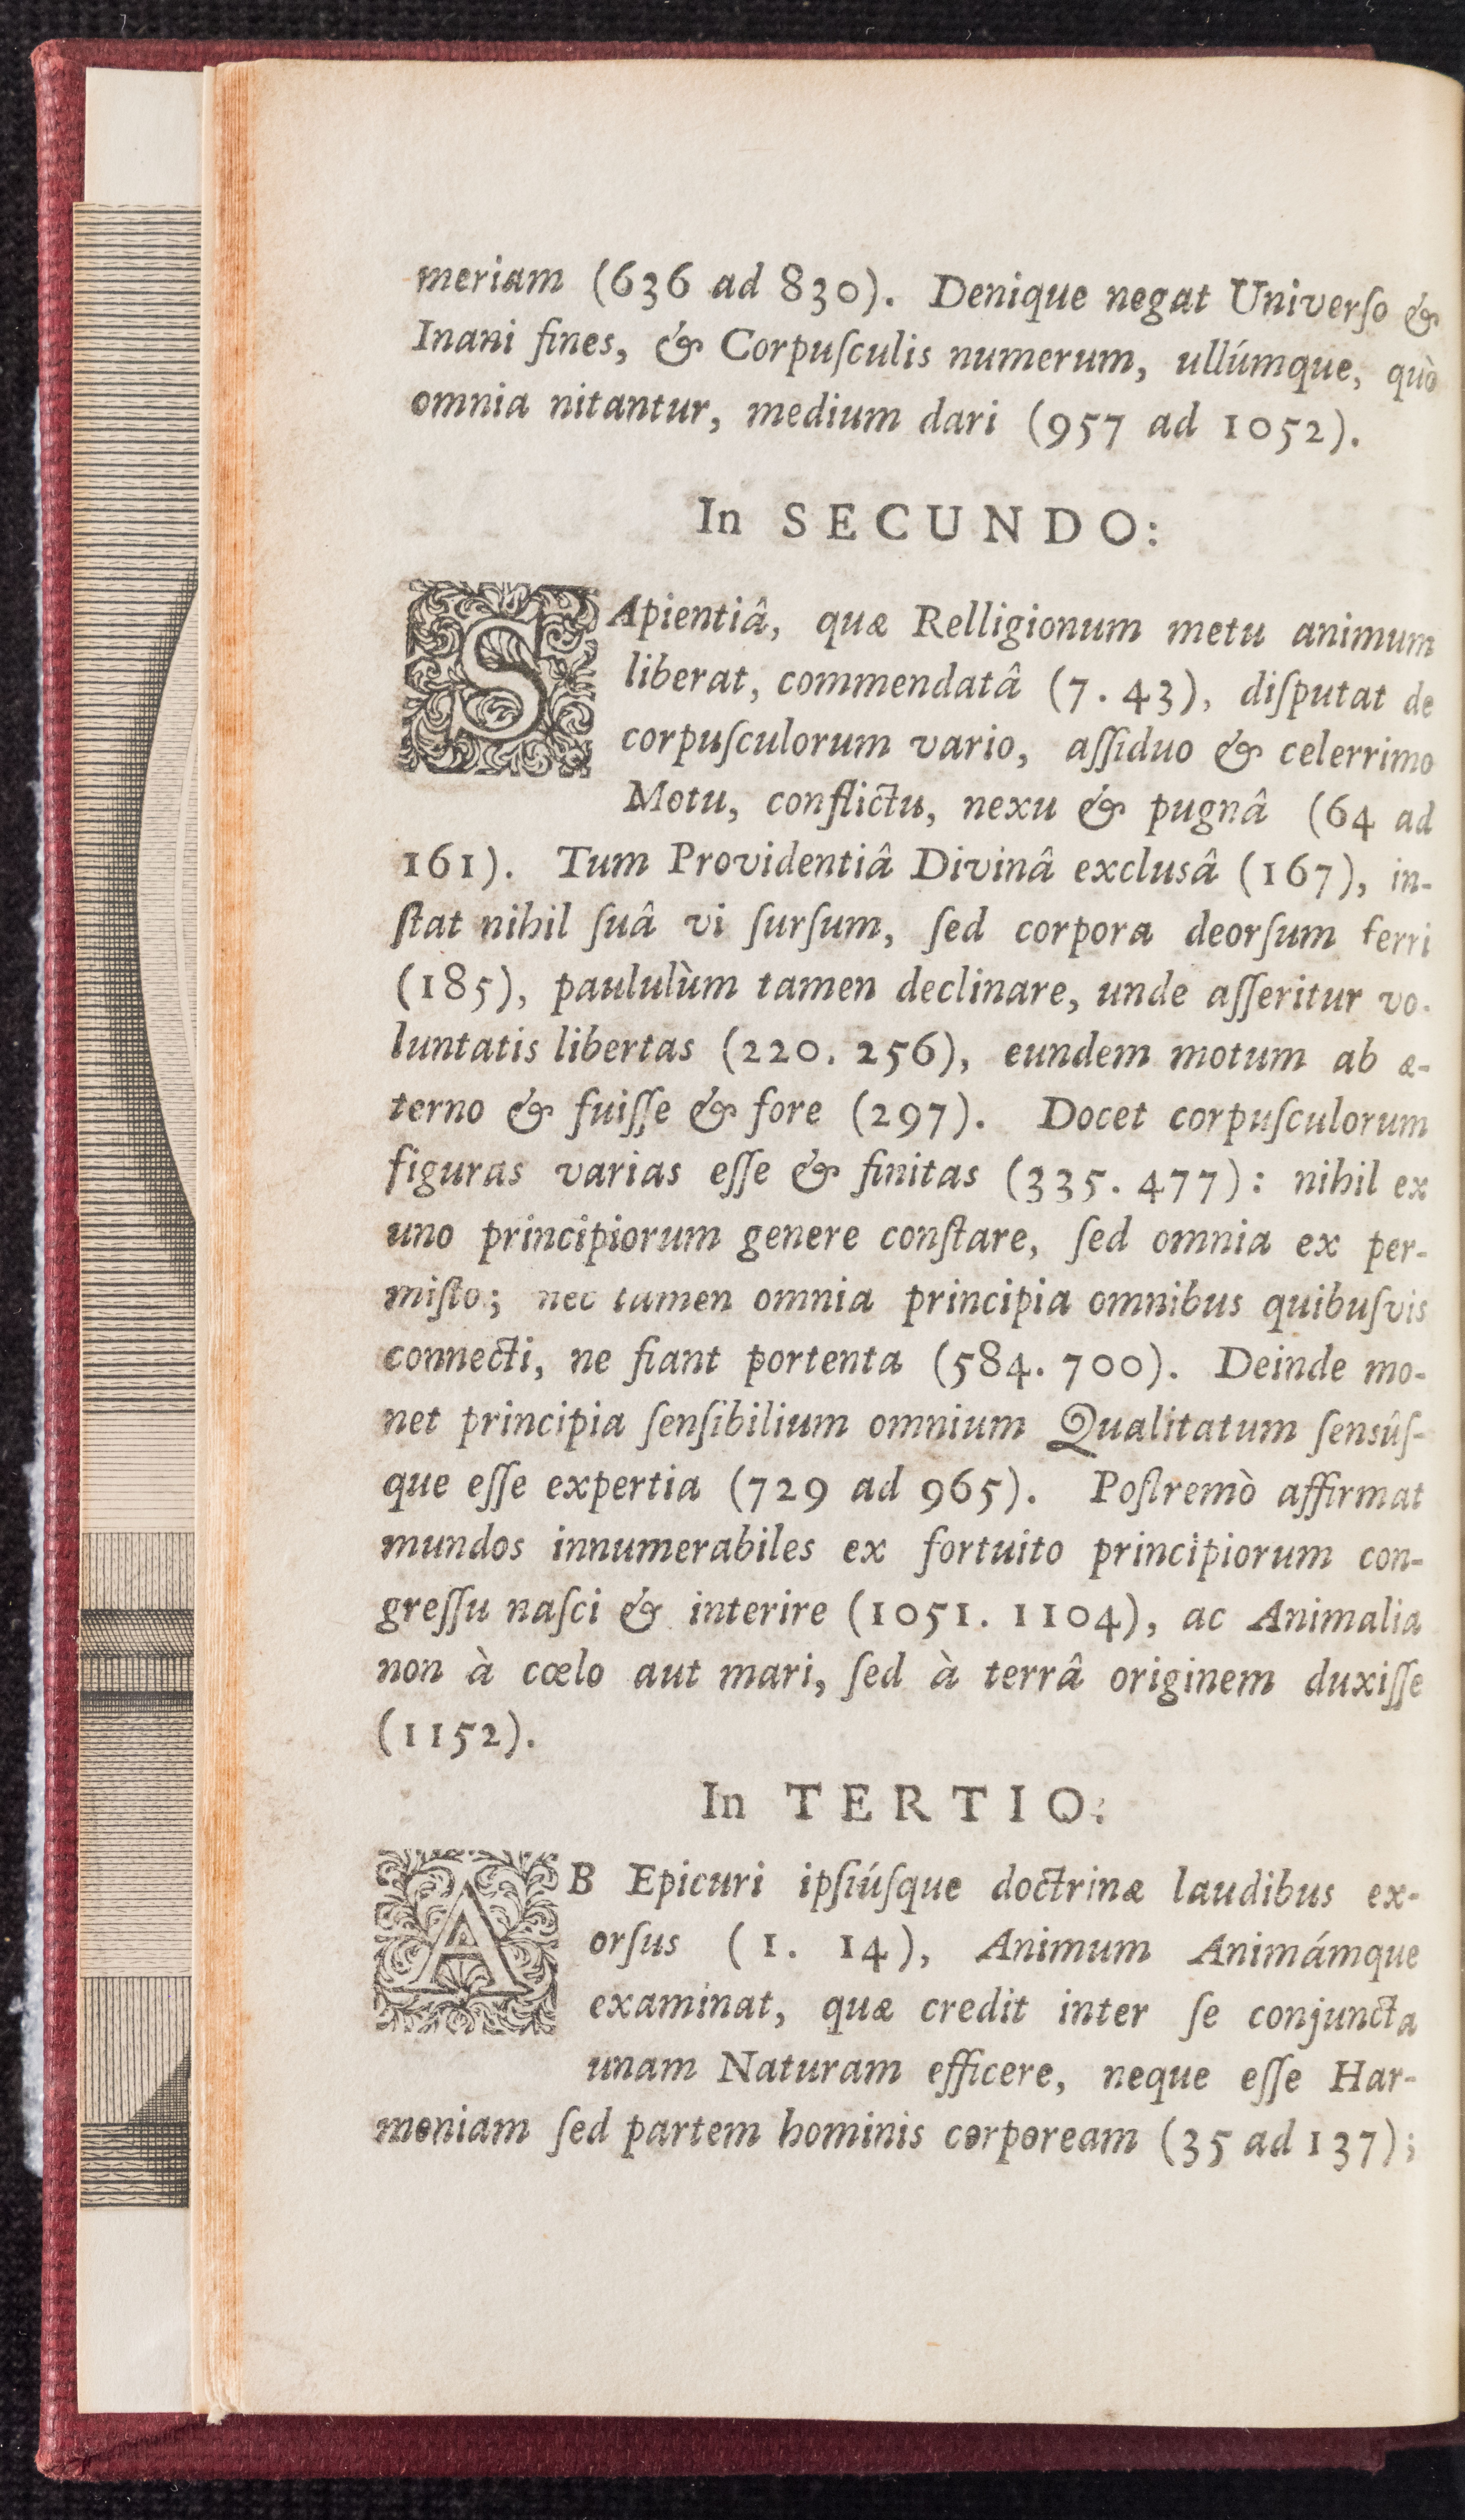 meriam (636 ad 830). Denique negat Univerſo &
Inani fines, & Corpuſculis numerum, ullúmque, quò
omnia nitantur, medium dari (957 ad 1052).
In SECUNDO:
SApientiâ, quæ Relligionum metu animum
liberat, commendatâ (7. 43), diſputat de
corpuſculorum vario, aſſiduo & celerrimo
Motu, conflictu, nexu & pugnâ (64 ad
161). Tum Providentiâ Divinâ exclusâ (167), in-
ſtat nihil ſuâ vi ſurſum, ſed corpora deorſum ferri
(185), paululùm tamen declinare, unde aſſeritur vo-
luntatis libertas (220. 256), eundem motum ab æ-
terno & fuiſſe & fore (297). Docet corpuſculorum
figuras varias eſſe & finitas (335. 477): nihil ex
uno principiorum genere conſtare, ſed omnia ex per-
miſto; nec tamen omnia principia omnibus quibuſvis
connecti, ne fiant portenta (584. 700). Deinde mo-
net principia ſenſibilium omnium Qualitatum ſensûſ-
que eſſe expertia (729 ad 965). Poſtremò affirmat
mundos innumerabiles ex fortuito principiorum con-
greſſu naſci & interire (1051. 1104), ac Animalia
non à cœlo aut mari, ſed à terrâ originem duxiſſe
(1152).
In TERTIO:
AB Epicuri ipſiúſque doctrinæ laudibus ex-
orſus (1. 14), Animum Animámque
examinat, quæ credit inter ſe conjuncta
unam Naturam efficere, neque eſſe Har-
moniam ſed partem hominis corpoream (35 ad 137);